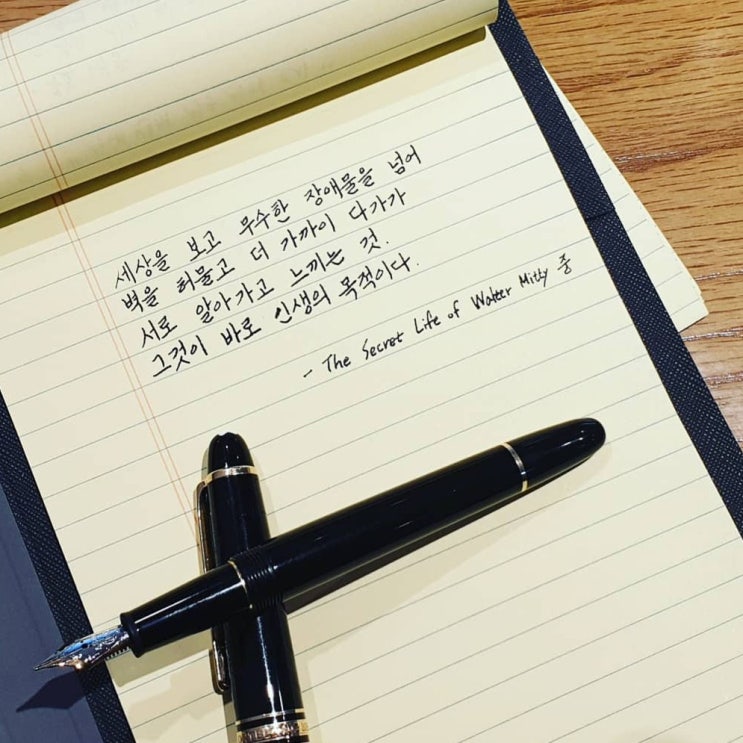 세상을 보고 무수한 장애물을 넘어
벽을 허물고 더 가까이 다가가
서로 알아가고 느끼는 것.
그것이 바로 인생의 목적이다.
- The Secret Life of Walter Mitty 중